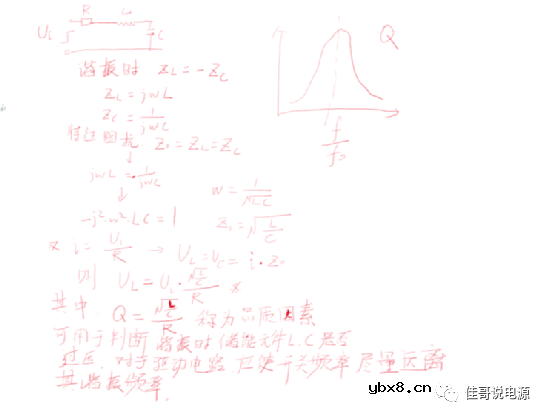 R L
Ui C
谐振时 ZL=-ZC
ZL=jwL
ZC=1/jwC
特征阻抗 Z0=ZL=ZC
↓
jwL=-1/jwC
↓
-j²·w²·LC=1
w=1/√LC
Z0=√(L/C)
* i=Ui/R → UL=UC=i·Z0
则 UL=Ui·√(L/C)/R *
其中 Q=√(L/C)/R 称为品质因素
可用于判断谐振时储能元件L.C是否
过压.对于驱动电路 应使开关频率尽量远离
其谐振频率.
Q
f/f0
ybx8.cn
佳哥说电源